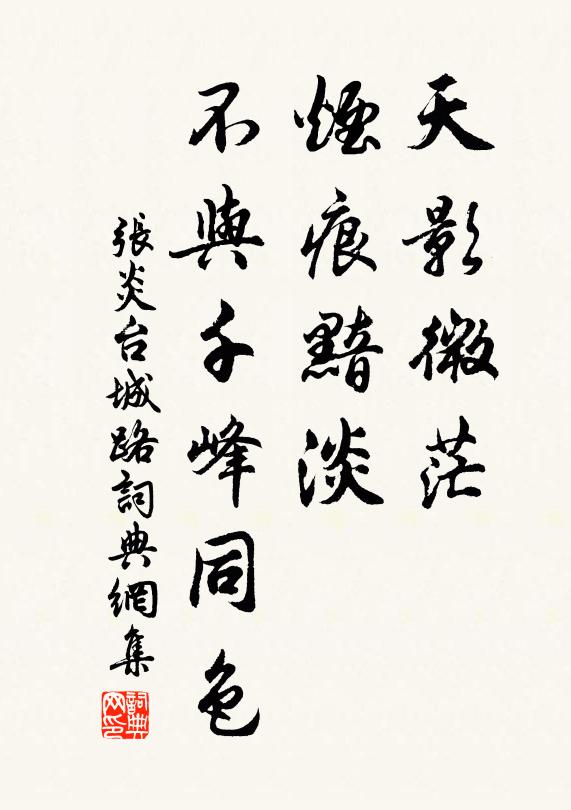 天影微茫
煙痕黯淡
不與千峰同色
張炎台城路詞典網集
詞典
网印